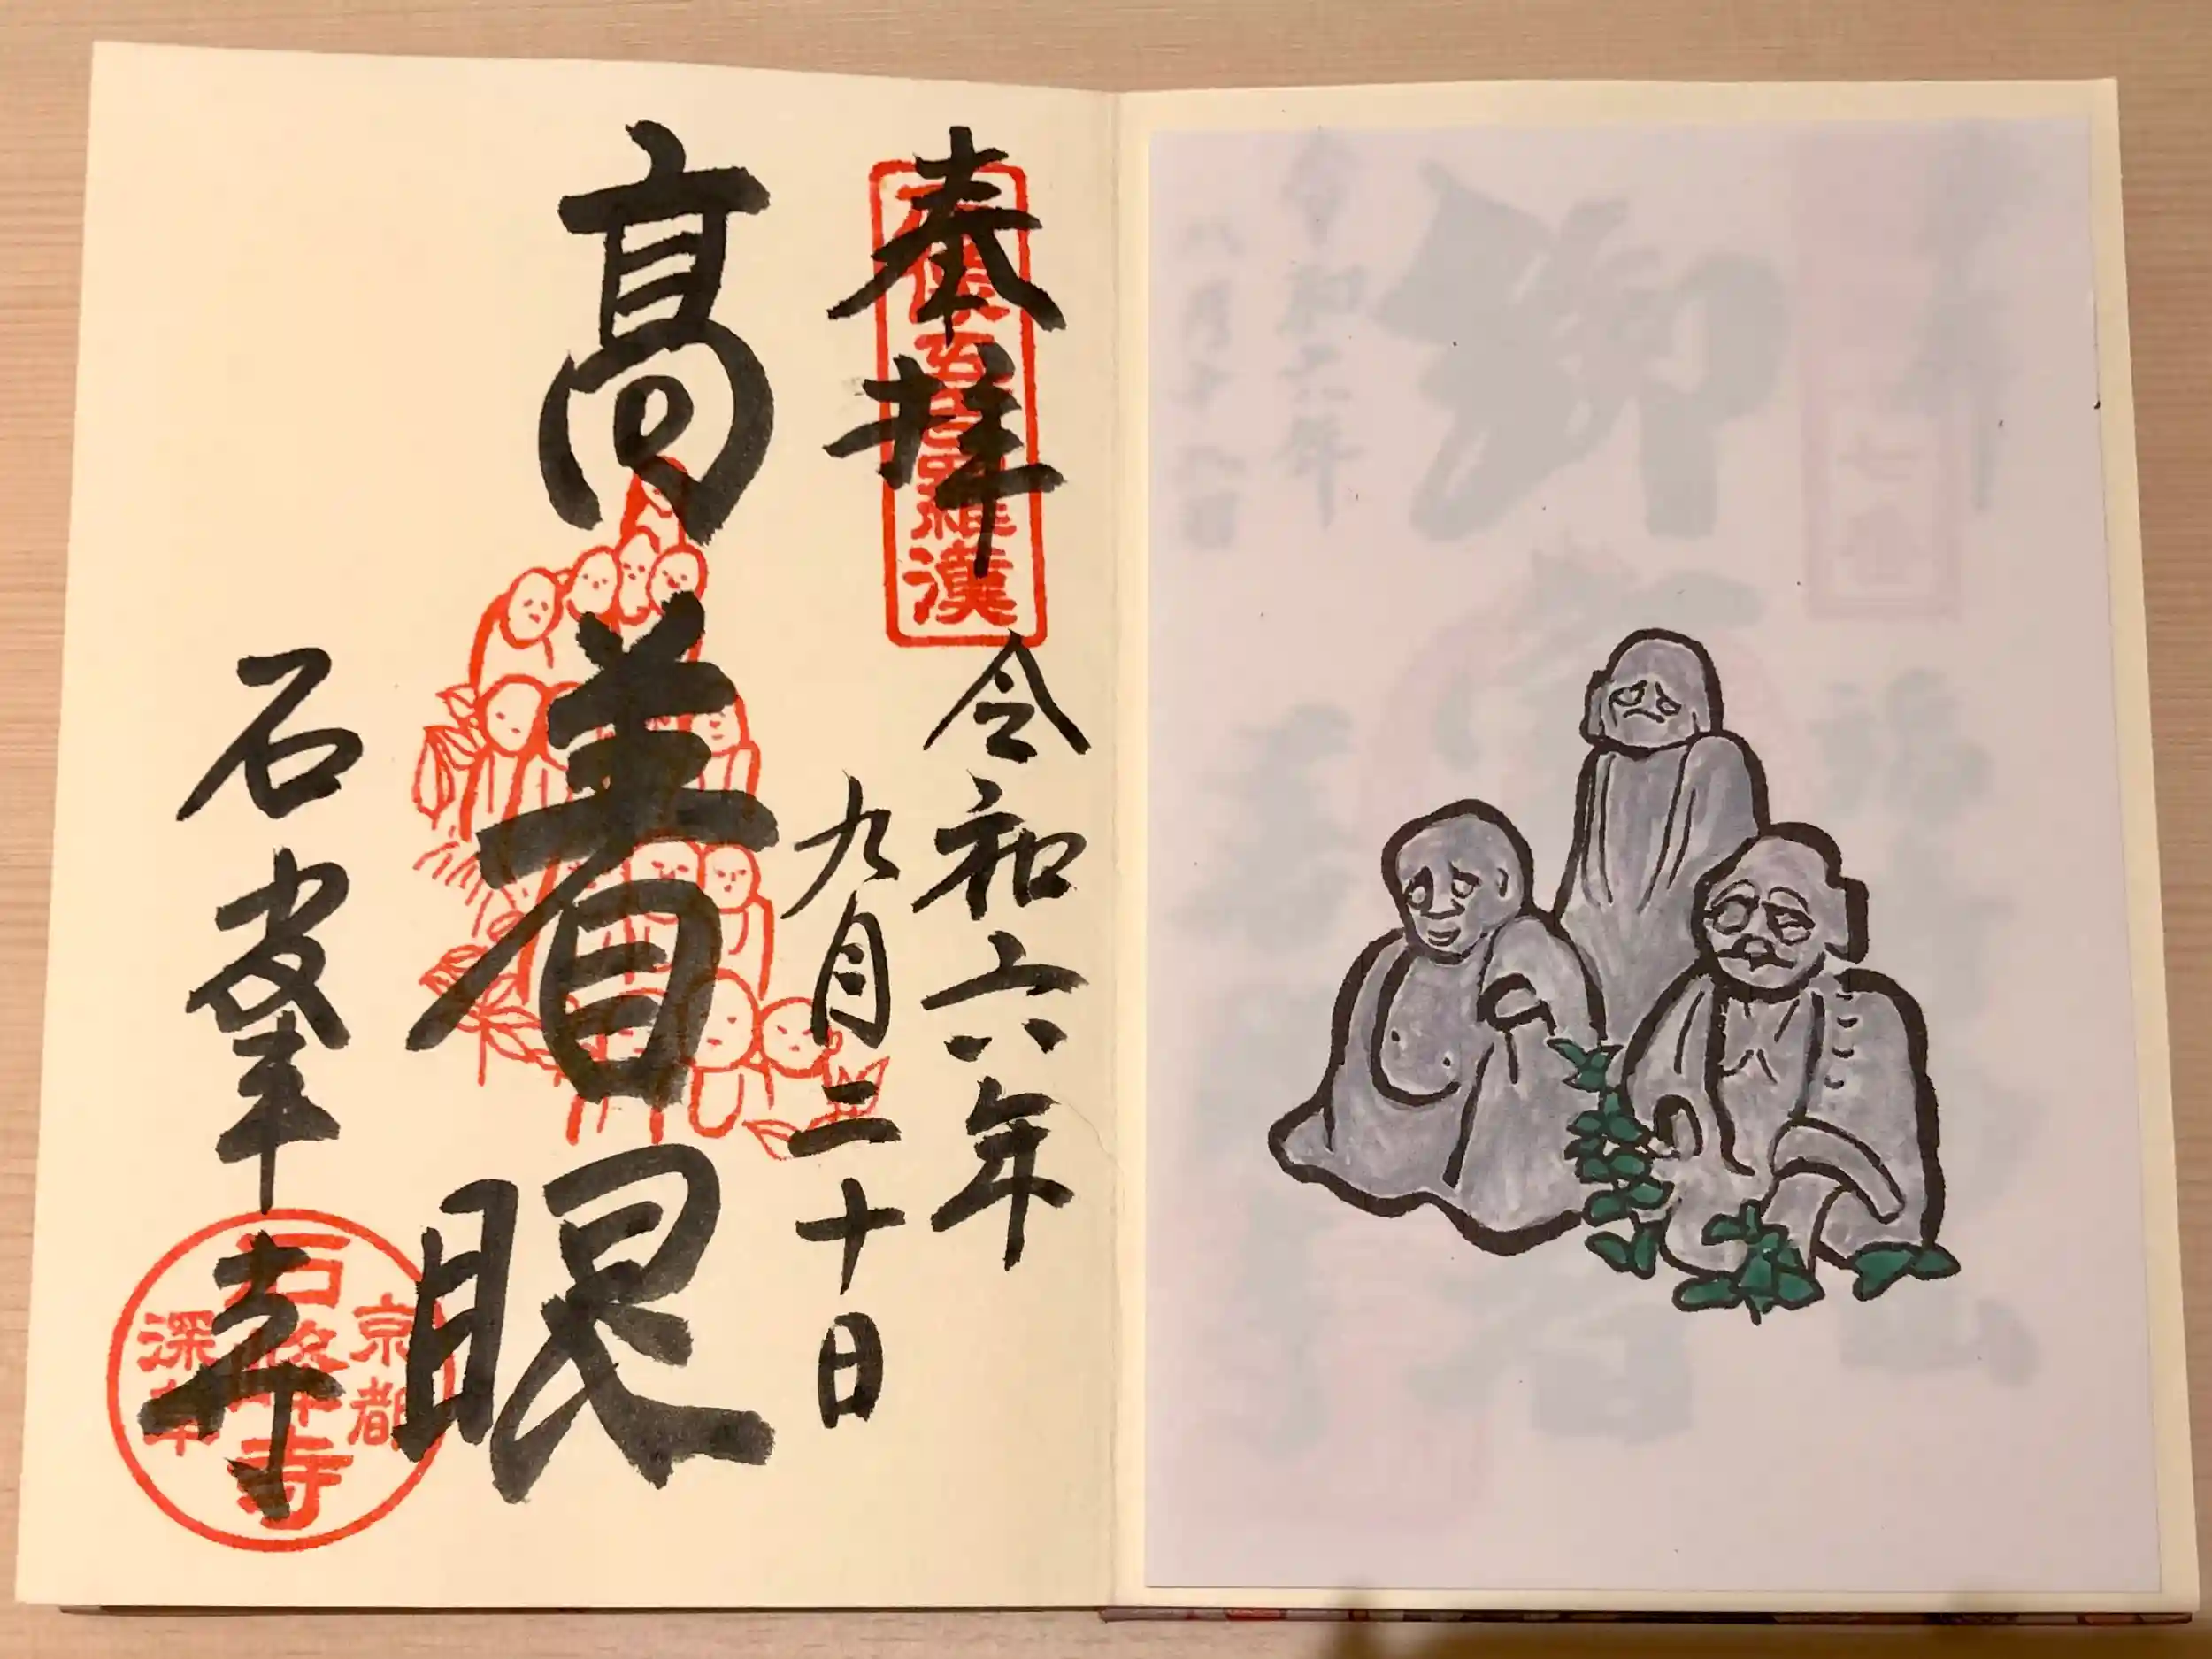 奉拝
五百羅漢
令和六年
九月二十日
髙着眼
石峯寺
京都
石峰寺
深草